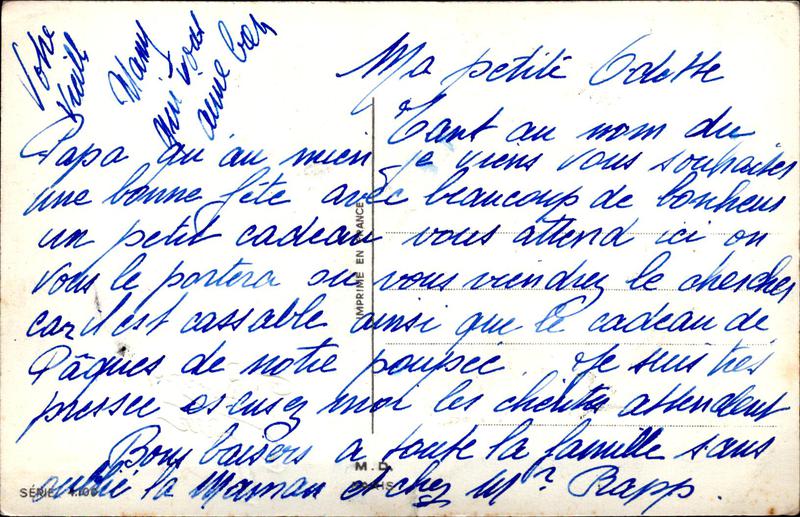 Ma petite Odette
Tant au nom du
Papa qu'au mien je viens vous souhaiter
une bonne fête avec beaucoup de bonheur
un petit cadeau vous attend ici on
vous le portera ou vous viendrez le chercher
car il est cassable ainsi que le cadeau de
Pâques de notre poupée. Je suis très
pressée excusez moi les clients attendent
Bons baisers a toute la famille sans
oublié la Maman et chez Mr Rapp.
Votre
vieille
Mamy
qui vous
aime bien
IMPRIME EN FRANCE
M. D.
PARIS
SÉRIE